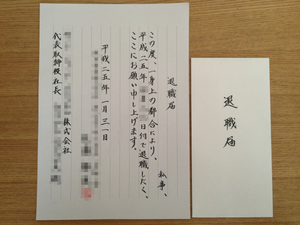 退職届
私事、
この度、一身上の都合により、
平成二五年 日付で退職したく、
ここにお願い申し上げます。
平成二五年 一月三一日
株式会社
代表取締役社長
退職届